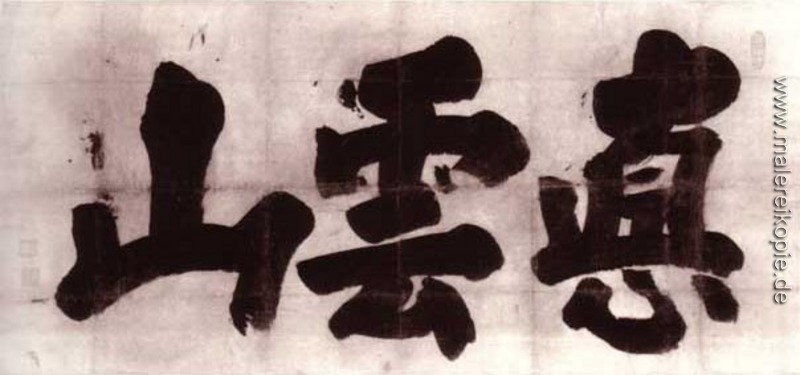 悳雲山
www.malereikopie.de